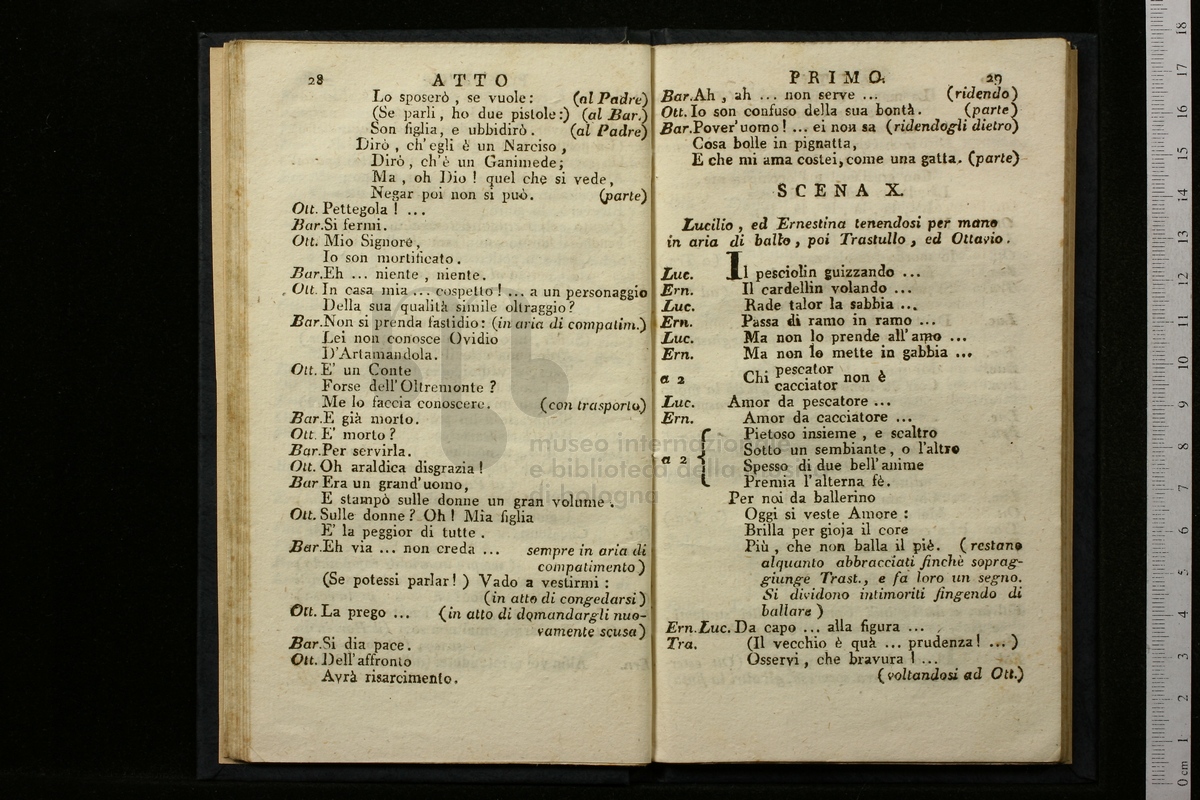 28 ATTO
Lo sposerò , se vuole: (al Padre)
(Se parli, ho due pistole:) (al Bar.)
Son figlia, e ubbidirò. (al Padre)
Dirò , ch'egli è un Narciso ,
Dirò , ch'è un Ganimede;
Ma , oh Dio ! quel che si vede,
Negar poi non si può. (parte)
Ott. Pettegola ! ...
Bar. Si fermi.
Ott. Mio Signore,
Io son mortificato.
Bar. Eh ... niente , niente.
Ott. In casa mia ... cospetto ! ... a un personaggio
Della sua qualità simile oltraggio?
Bar. Non si prenda fastidio: (in aria di compatim.)
Lei non conosce Ovidio
D'Artamandola.
Ott. E' un Conte
Forse dell'Oltremonte ?
Me lo faccia conoscere. (con trasporto)
Bar. E già morto.
Ott. E' morto ?
Bar. Per servirla.
Ott. Oh araldica disgrazia !
Bar Era un grand'uomo,
E stampò sulle donne un gran volume .
Ott. Sulle donne ? Oh ! Mia figlia
E' la peggior di tutte .
Bar. Eh via ... non creda ... sempre in aria di
compatimento )
(Se potessi parlar ! ) Vado a vestirmi :
(in atto di congedarsi )
Ott. La prego ... (in atto di domandargli nuo-
vamente scusa)
Bar. Si dia pace.
Ott. Dell'affronto
Avrà risarcimento.
PRIMO. 29
Bar. Ah , ah ... non serve ... (ridendo)
Ott. Io son confuso della sua bontà. (parte)
Bar. Pover'uomo ! ... ei non sa (ridendogli dietro)
Cosa bolle in pignatta,
E che mi ama costei, come una gatta. (parte)
SCENA X.
Lucilio , ed Ernestina tenendosi per mano
in aria di ballo , poi Trastullo , ed Ottavio .
Luc. Il pesciolin guizzando ...
Ern. Il cardellin volando ...
Luc. Rade talor la sabbia ...
Ern. Passa di ramo in ramo ...
Luc. Ma non lo prende all'amo ...
Ern. Ma non lo mette in gabbia ...
a 2 Chi pescator
cacciator non è
Luc. Amor da pescatore ...
Ern. Amor da cacciatore ...
a 2 { Pietoso insieme , e scaltro
Sotto un sembiante, o l'altro
Spesso di due bell'anime
Premia l'alterna fè.
Per noi da ballerino
Oggi si veste Amore :
Brilla per gioja il core
Più , che non balla il piè. ( restano
alquanto abbracciati finchè soprag-
giunge Trast., e fa loro un segno.
Si dividono intimoriti fingendo di
ballare )
Ern. Luc. Da capo ... alla figura ...
Tra. (Il vecchio è quà ... prudenza ! ... )
Osservi , che bravura ! ...
(voltandosi ad Ott.)
museo internazionale
e biblioteca della musica
di bologna
0 cm 1 2 3 4 5 6 7 8 9 10 11 12 13 14 15 16 17 18